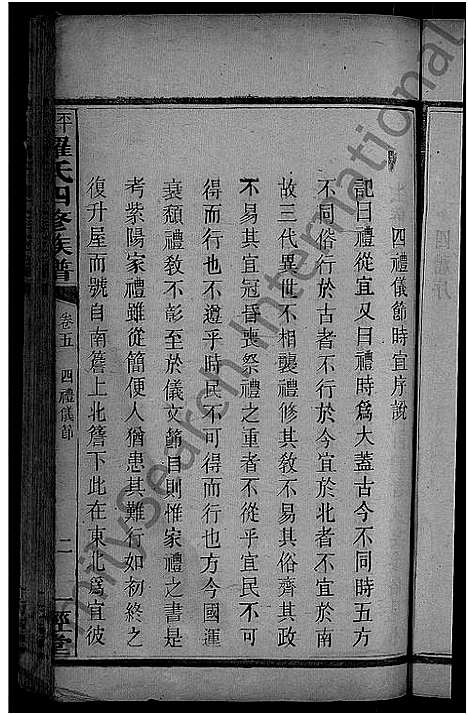 四禮儀節時宜序說
記曰禮從宜又曰禮時爲大蓋古今不同時五方
不同俗行於古者不行於今宜於北者不宜於南
故三代異世不相襲禮修其敎不易其俗齊其政
不易其宜冠昏喪祭禮之重者不從乎宜民不可
得而行也不遵乎時民不可得而行也方今國運
衰頹禮敎不彰至於儀文節目則惟家禮之書是
考紫陽家禮雖從簡便人猶患其難行如初終之
復升屋而號自南簷上北簷下此在東北爲宜彼
羅氏四修族譜
卷五
四禮儀節
二
一經堂
FamilySearch International